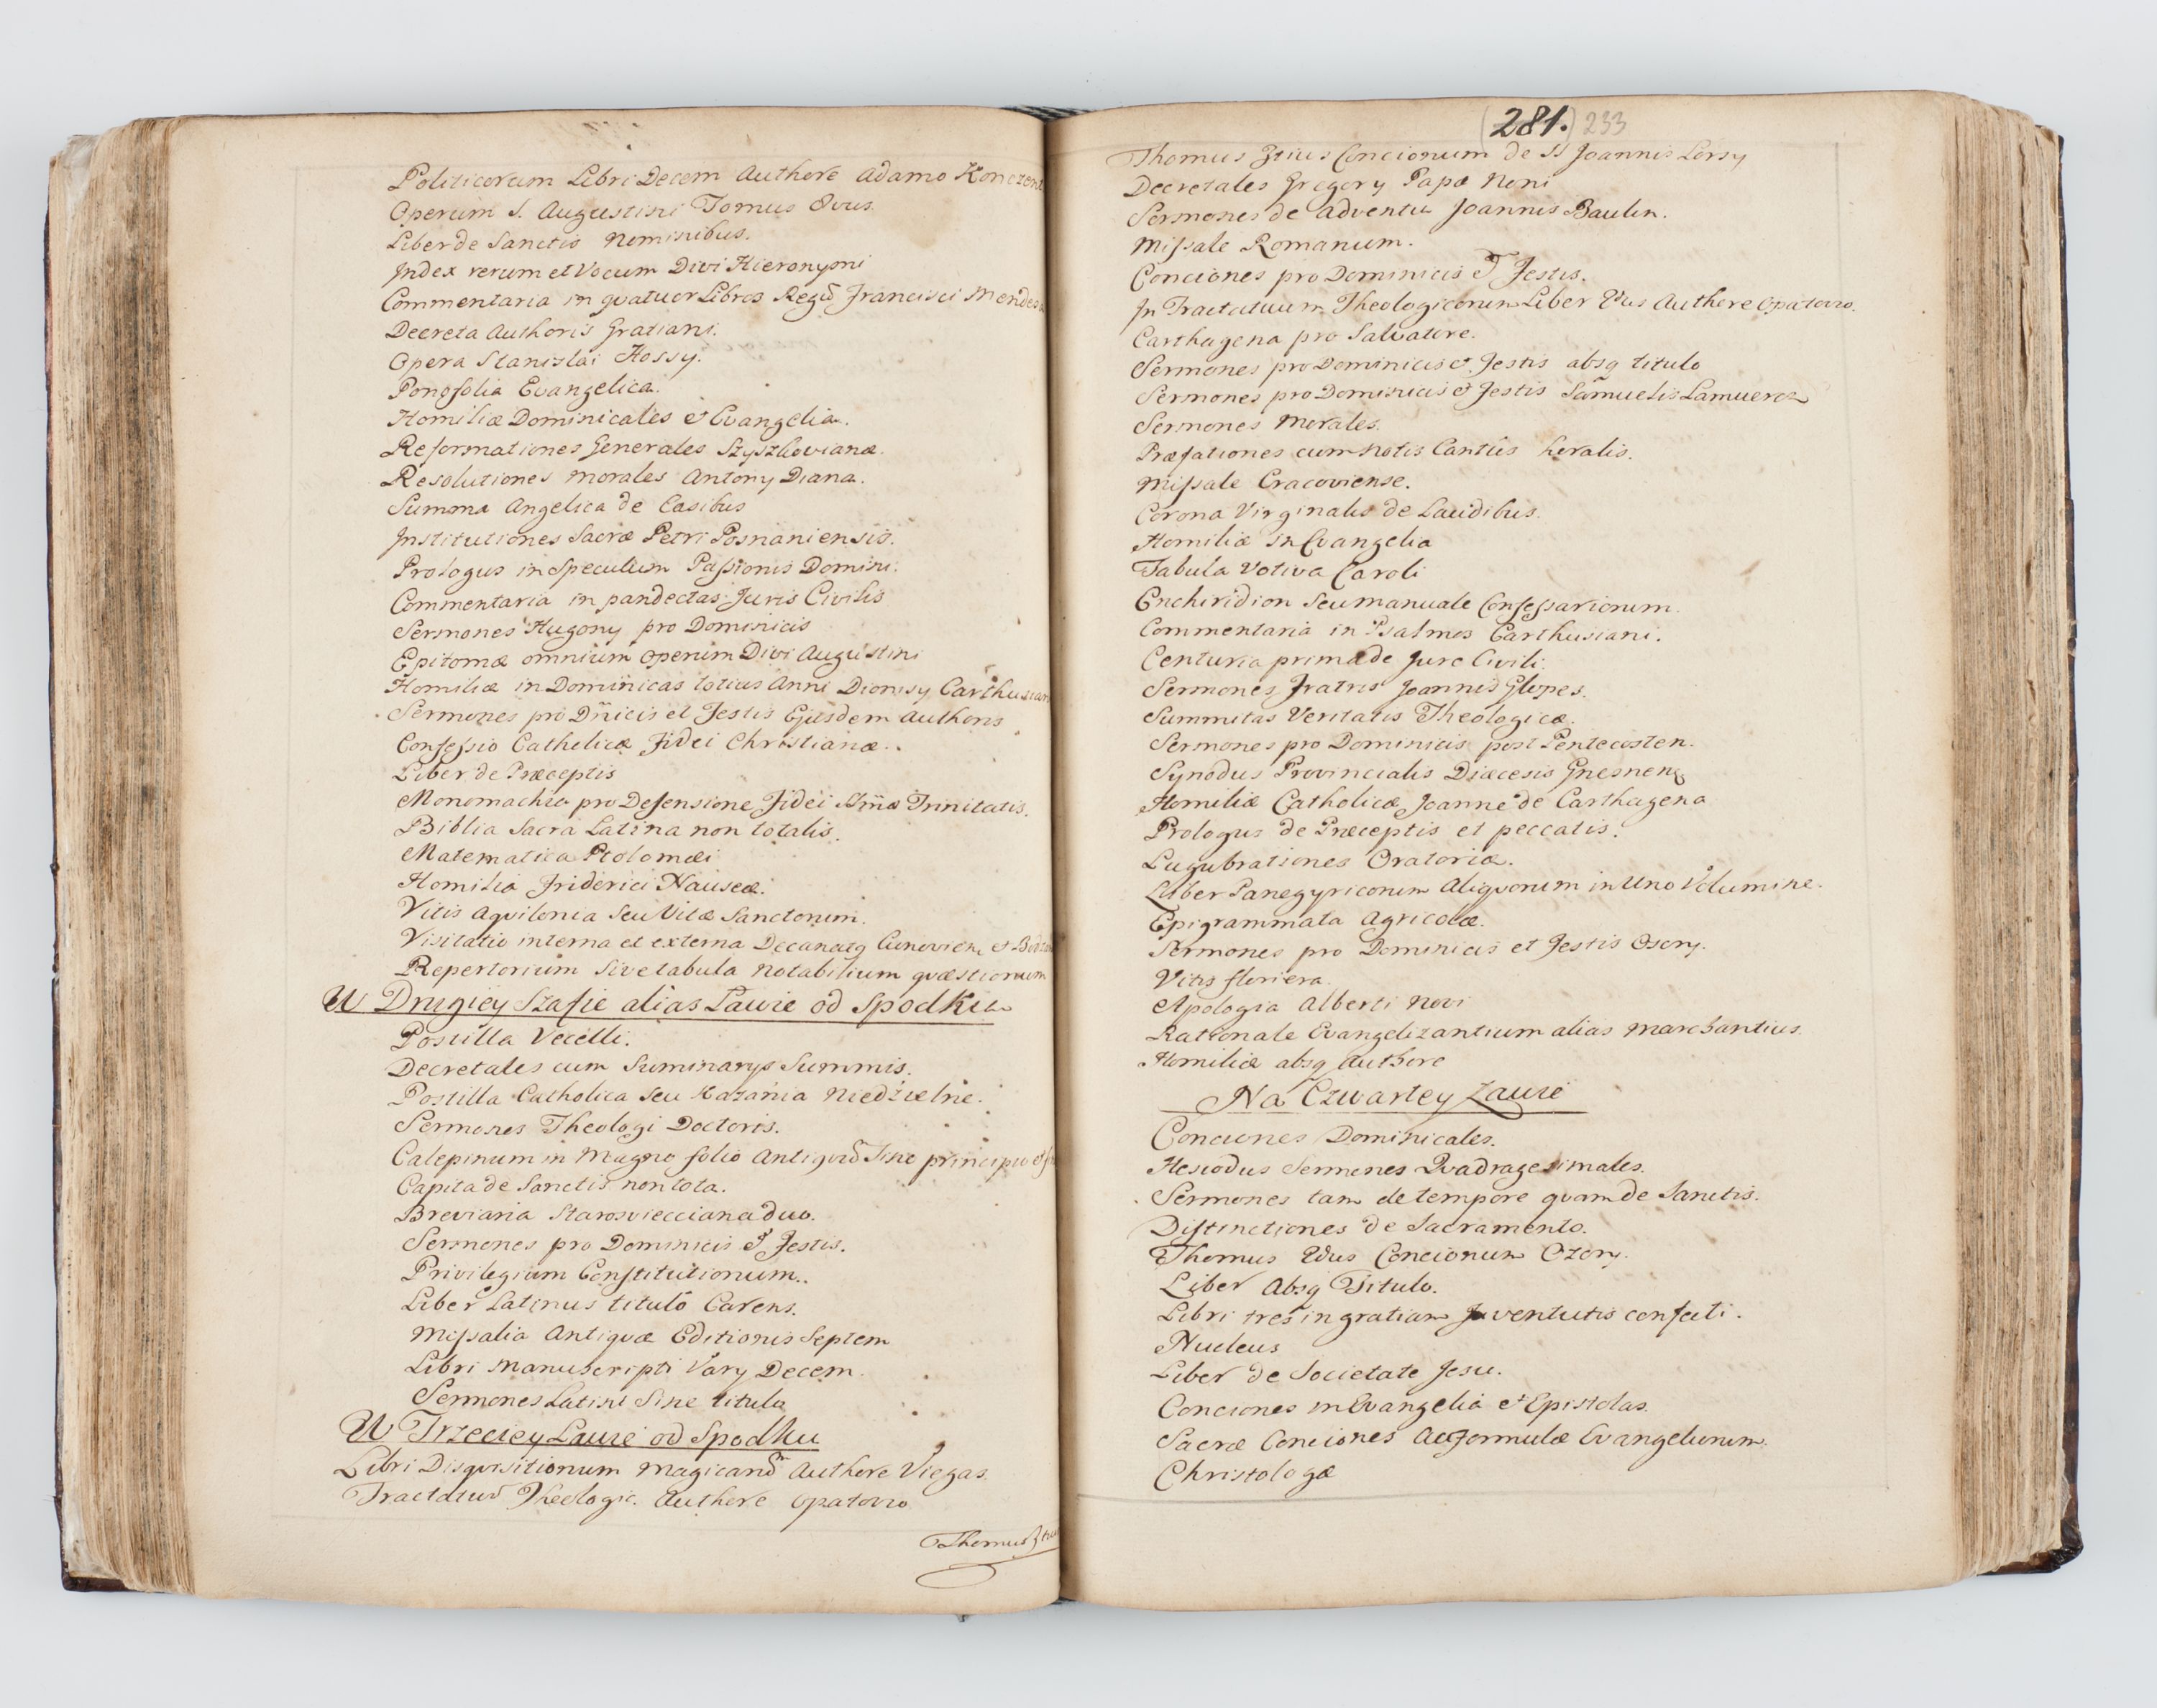 Politicorum Libri Decem Authore Adamo Konczen
Operum S. Augustini Tomus 8vus.
Liber de Sanctis Nominibus.
Index rerum et Vocum Divi Hieronymi
Commentaria in quatuor Libros Regũ Francisci Mendes
Decreta Authoris Gratiani.
Opera Stanislai Hossy.
Ponosolia Evangelica.
Homiliæ Dominicales et Evangelia.
Reformationes Generales Szyszkovianæ.
Resolutiones Morales Antony Diana.
Summa Angelica de Casibus
Institutiones Sacræ Petri Posnaniensis.
Prologus in Speculum Passionis Domini.
Commentaria in pandectas Juris Civilis
Sermones Hugony pro Dominicis
Epitomæ omnium operum Divi Augustini
Homiliæ in Dominicas totius Anni Dionisy Carthusian
Sermones pro Dñicis et Festis Ejusdem Authoris
Confessio Catholicæ Fidei Christianæ.
Liber de Præceptis
Monomachia pro Defensione Fidei SSmæ Trinitatis.
Biblia Sacra Latina non totalis.
Matematica Ptolomæi
Homilia Friderici Nauseæ.
Vitis Aquilonia Seu Vitæ Sanctorum.
Visitatio interna et externa Decanatg Cunovien, et
Repertorium Sive tabula Notabilium quæstionum
W Drugiey Szafie alias Lawie od Spodku
Postilla Vecelli.
Decretales cum Summarys Summis.
Postilla Catholica Seu Kazania Niedzielne.
Sermones Theologi Doctoris.
Calepinum in Magno folio Antiquũ Sine principio et
Capita de Sanctis non tota.
Breviaria Starosviecciana duo.
Sermones pro Dominicis et Festis.
Privilegium Constitutionum.
Liber Latinus titulo Carens.
Missalia Antiquæ Editionis Septem
Libri Manuscripti Vary Decem.
Sermones Latini Sine titulo
W Trzeciey Lawie od Spodku
Libri Disquisitionum Magicarũ Authore Viegas.
Tractatuũ Theologic. Authore Opatovio
Thomus 3tius
281. 233
Thomus 3tius Concionum de SS Joannis Lorsy
Decretales Gregory Papæ Noni
Sermones de Adventu Joannis Baulin.
Missale Romanum.
Conciones pro Dominicis et Festis.
In Tractatuum Theologicorum Liber 2dus Authore Opatovio.
Carthagena pro Salvatore.
Sermones pro Dominicis et Festis absq titulo
Sermones pro Dominicis et Festis Samuelis
Sermones Morales.
Præfationes cum Notis Cantûs horalis.
Missale Cracoviense.
Corona Virginalis de Laudibus.
Homiliæ in Evangelia
Tabula Votiva Caroli
Enchiridion Seu manuale Confessariorum.
Commentaria in Psalmos Carthusiani.
Centuria prima de Jure Civili.
Sermones Fratris Joannis Glopes.
Summitas Veritatis Theologicæ.
Sermones pro Dominicis post Pentecosten.
Synodus Provincialis Diæcesis Gnesnen,
Homiliæ Catholicæ Joanne de Carthagena
Prologus de Præceptis et peccatis.
Lugubrationes Oratoriæ.
Liber Panegyricorum Aliquorum in Uno Volumine.
Epigrammata Agricolæ.
Sermones pro Dominicis et Festis Osory.
Vitis floriera.
Apologia Alberti Novi
Rationale Evangelizantium alias Marchantius.
Homiliæ absq Authore
Na Czwartey Lawie
Conciones Dominicales.
Hesiodus Sermones Quadragesimales.
Sermones tam de tempore quam de Sanctis.
Distinctiones de Sacramento.
Thomus 2dus Concionum Ozory.
Liber Absq Titulo.
Libri tres in gratiam Juventutis confecti.
Nucleus
Liber de Societate Jesu.
Conciones in Evangelia et Epistolas.
Sacræ Conciones Ac Formulæ Evangeliorum.
Christologæ